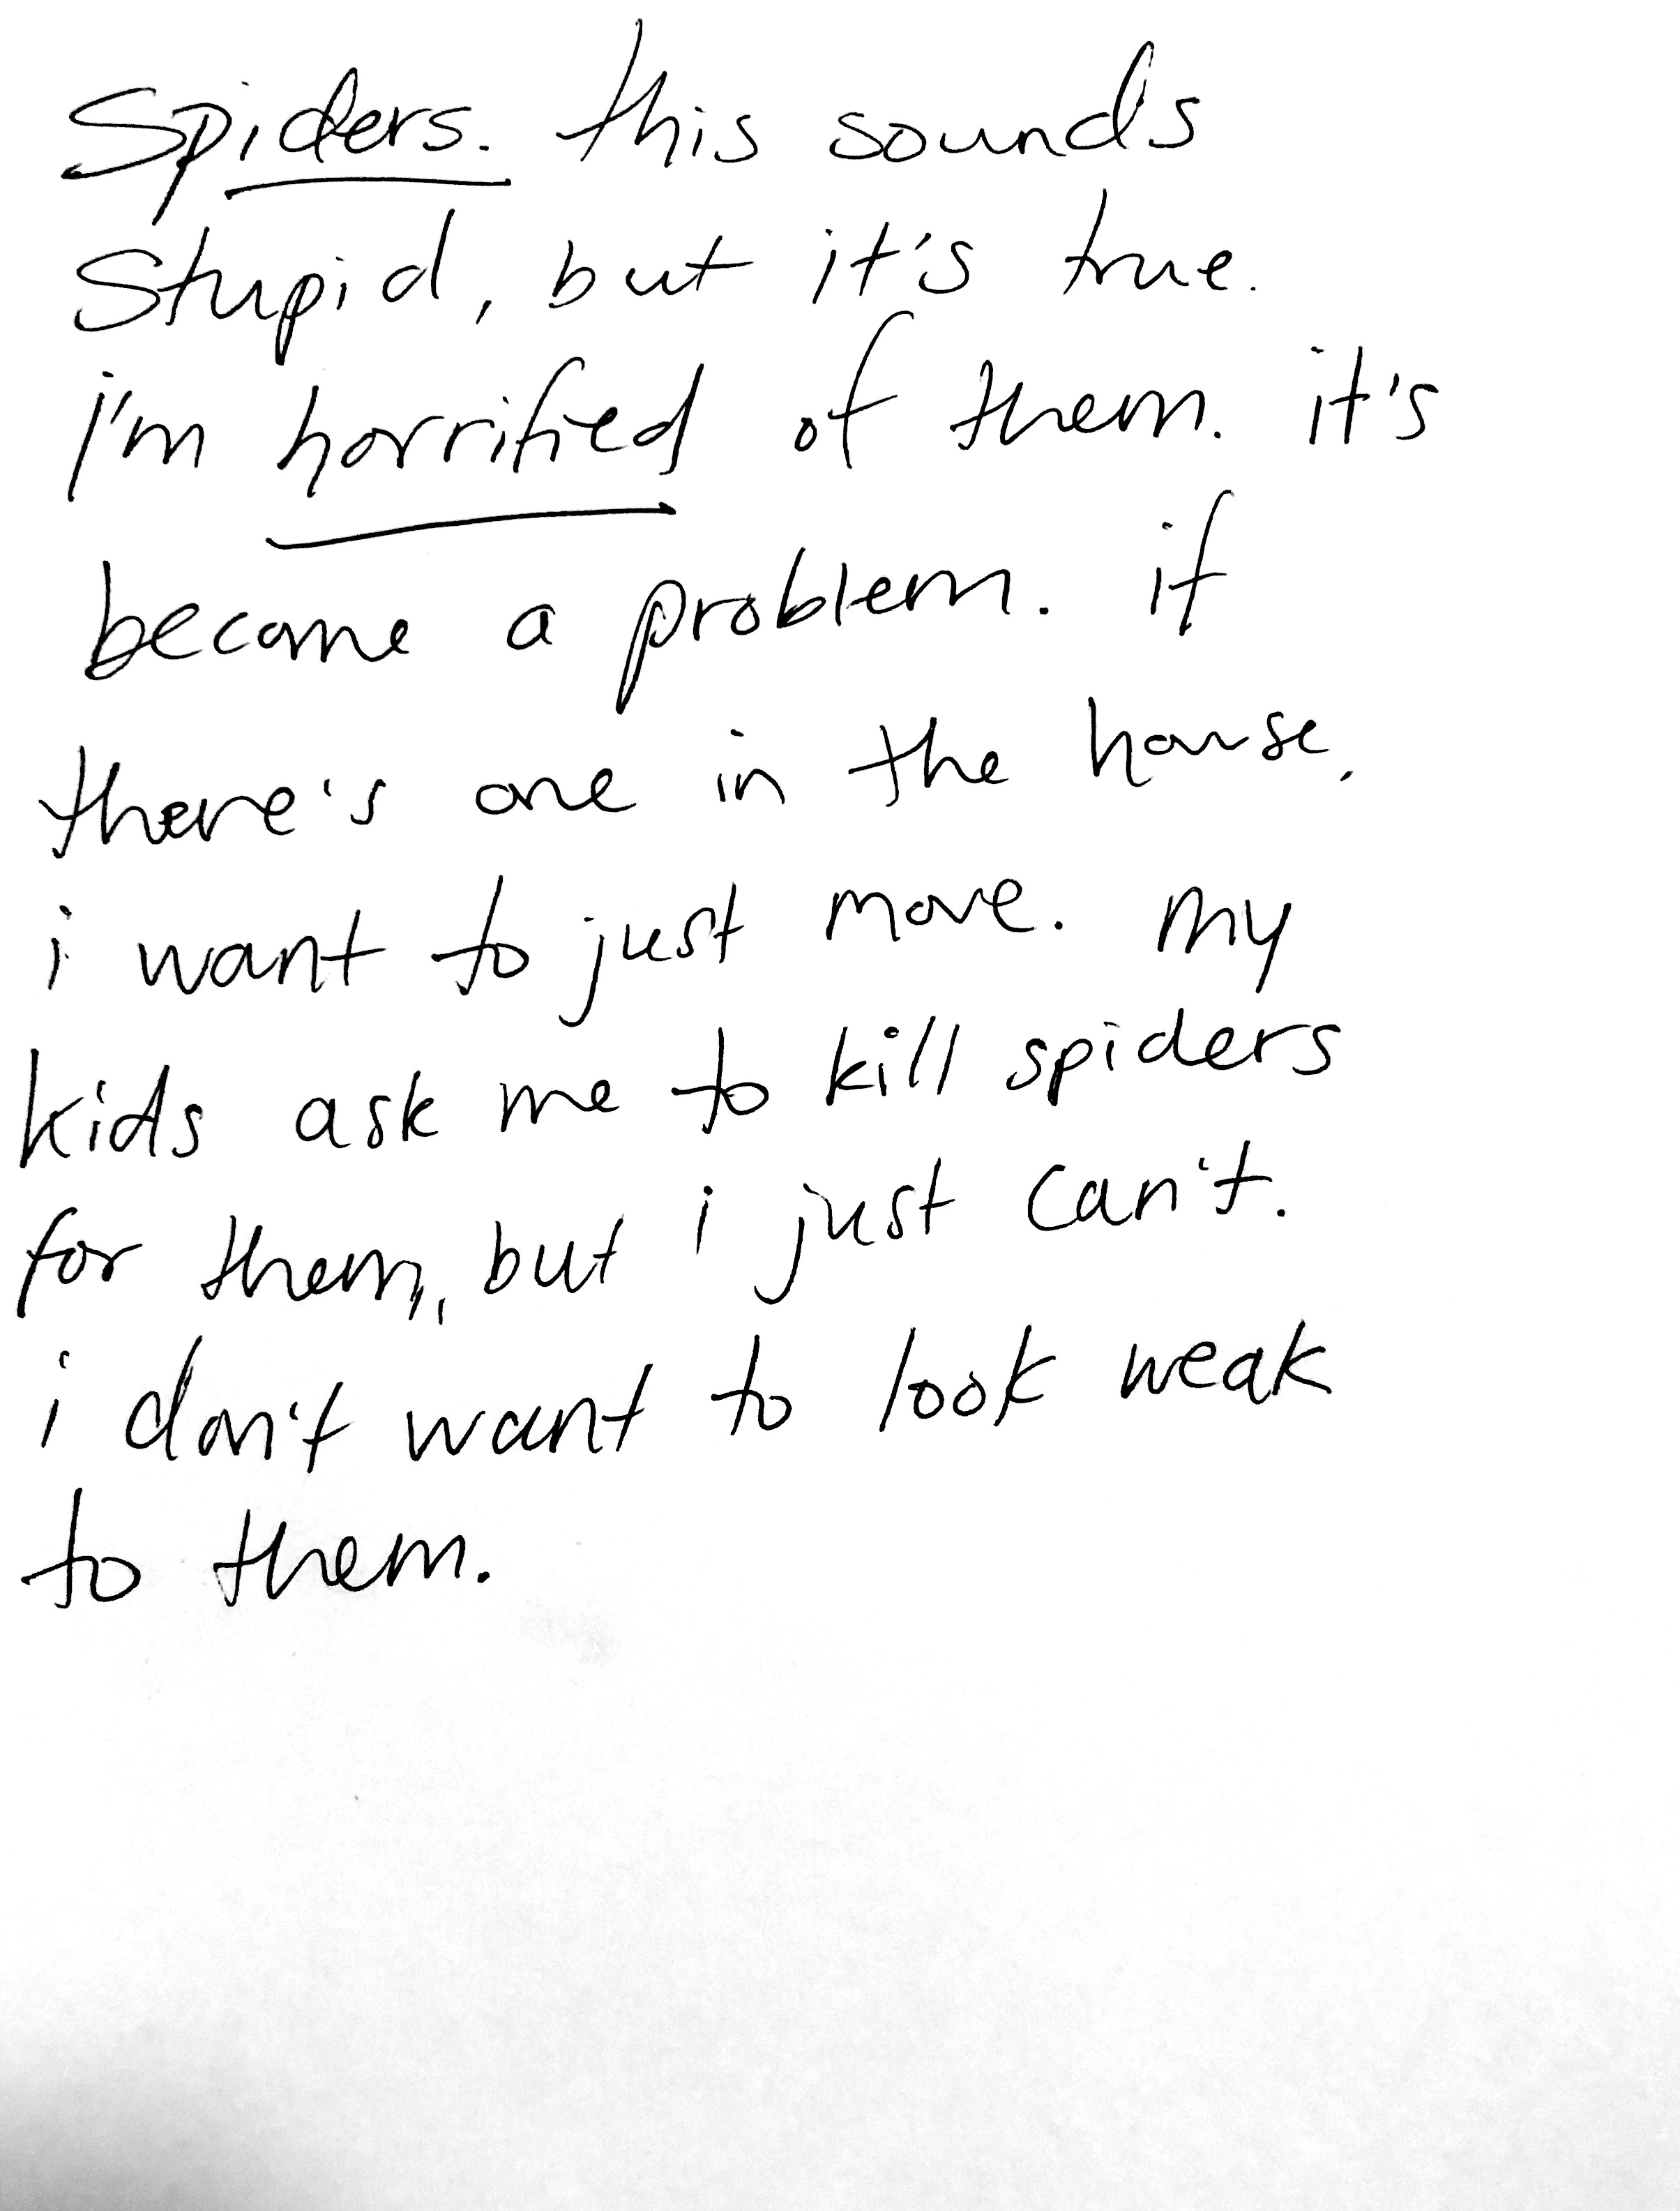 Spiders. this sounds
Stupid, but it's true.
i'm horrified of them. it's
become a problem. if
there's one in the house,
i want to just move. my
kids ask me to kill spiders
for them, but i just can't.
i don't want to look weak
to them.